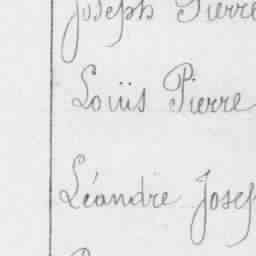 Joseph Pierre
Loüis Pierre
Léandre Josep